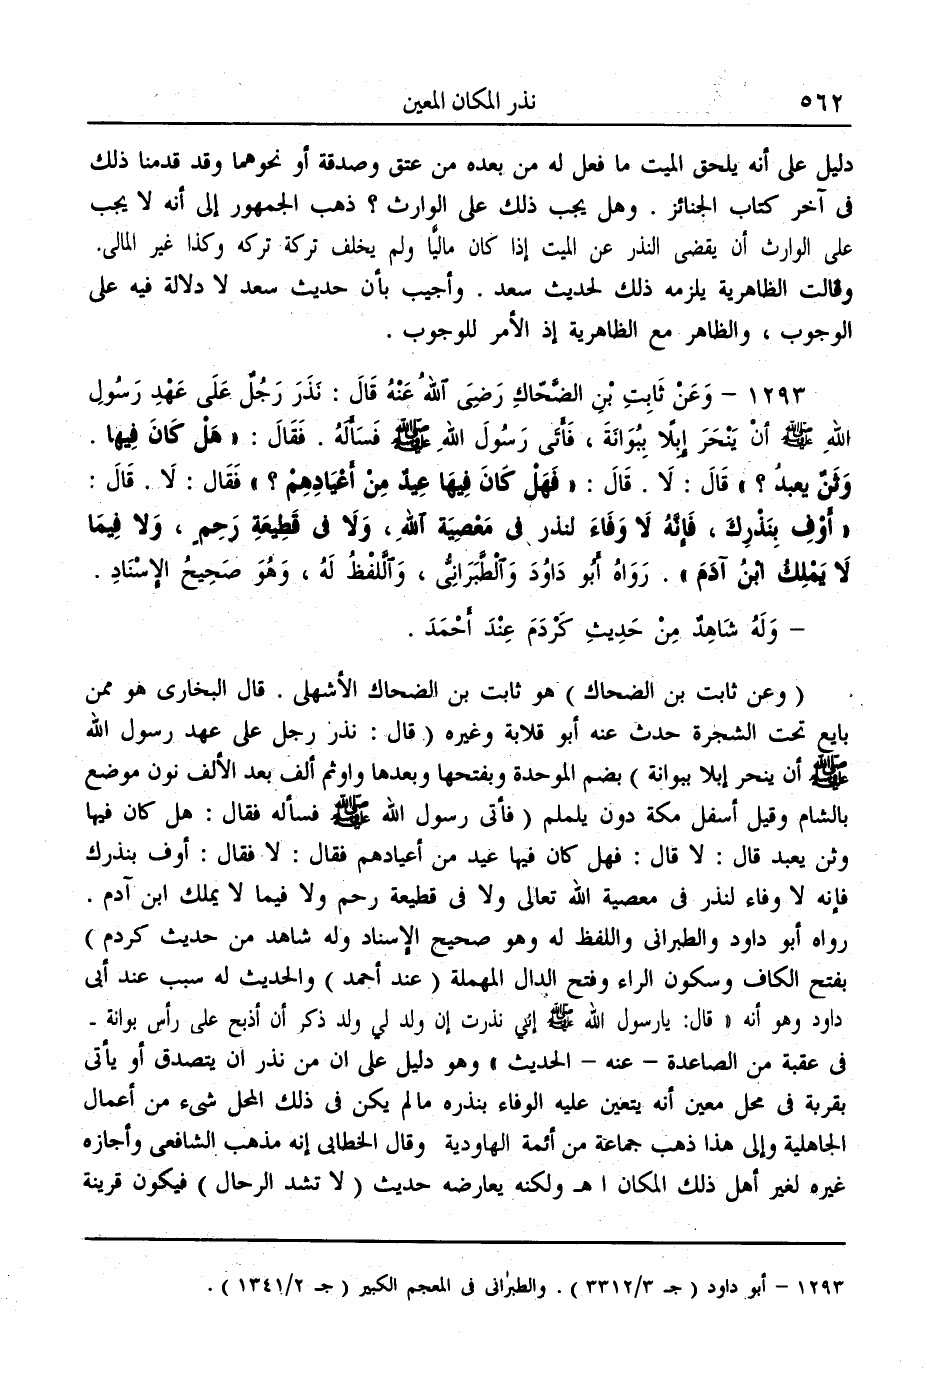 ٥٦٢ نذر المكان المعين
دليل على أنه يلحق الميت ما فعل له من بعده من عتق وصدقة أو نحوهما وقد قدمنا ذلك
فى آخر كتاب الجنائز . وهل يجب ذلك على الوارث ؟ ذهب الجمهور إلى أنه لا يجب
على الوارث أن يقضى النذر عن الميت إذا كان ماليًّا ولم يخلف تركة تركه وكذا غير المالى.
وقالت الظاهرية يلزمه ذلك لحديث سعد . وأجيب بأن حديث سعد لا دلالة فيه على
الوجوب ، والظاهر مع الظاهرية إذ الأمر للوجوب .
١٢٩٣ – وَعَنْ ثَابِتِ بْنِ الضَّحّاكِ رَضِىَ ٱللهُ عَنْهُ قَالَ : نَذَرَ رَجُلٌ عَلَى عَهْدِ رَسُولِ
اللهِ ﷺ أَنْ يَنْحَرَ إِبِلًا بِبُوَانَةَ ، فَأَتَى رَسُولَ اللهِ ﷺ فَسَأَلَهُ . فَقَالَ : « هَلْ كَانَ فِيهَا .
وَثَنٌ يعبدُ ؟ » قَالَ : لَا . قَالَ : « فَهَلْ كَانَ فِيهَا عِيدٌ مِنْ أَعْيَادِهِمْ ؟ » فَقَال : لَا . قَالَ :
« أَوْفِ بِنَذْرِكَ ، فَإِنَّهُ لَا وَفَاءَ لنذر فى مَعْصِيَة ٱللهِ ، وَلَا فى قَطِيعَةِ رَحِمٍ ، وَلا فِيمَا
لَا يَمْلِكُ ابْنُ آدَمَ » . رَوَاهُ أَبُو دَاوُدَ وَالْطَّبَرَانِىُّ ، وَٱللَّفْظُ لَهُ ، وَهُوَ صَحِيحُ الإِسْنَادِ .
– وَلَهُ شَاهِدٌ مِنْ حَدِيثِ كَرْدَمَ عِنْدَ أَحْمَدَ .
( وعن ثابت بن الضحاك ) هو ثابت بن الضحاك الأشهلى . قال البخارى هو ممن
بايع تحت الشجرة حدث عنه أبو قلابة وغيره ( قال : نذر رجل على عهد رسول الله
ﷺ أن ينحر إبلا ببوانة ) بضم الموحدة وبفتحها وبعدها واوثم ألف بعد الألف نون موضع
بالشام وقيل أسفل مكة دون يلملم ( فأتى رسول الله ﷺ فسأله فقال : هل كان فيها
وثن يعبد قال : لا قال : فهل كان فيها عيد من أعيادهم فقال : لا فقال : أوف بنذرك
فإنه لا وفاء لنذر فى معصية الله تعالى ولا فى قطيعة رحم ولا فيما لا يملك ابن آدم .
رواه أبو داود والطبرانى واللفظ له وهو صحيح الإسناد وله شاهد من حديث كردم )
بفتح الكاف وسكون الراء وفتح الدال المهملة ( عند أحمد ) والحديث له سبب عند أبى
داود وهو أنه « قال: يارسول الله ﷺ إنّي نذرت إن ولد لي ولد ذكر أن أذبح على رأس بوانة ـ
فى عقبة من الصاعدة – عنه – الحديث » وهو دليل على ان من نذر ان يتصدق أو يأتى
بقربة فى محل معين أنه يتعين عليه الوفاء بنذره مالم يكن فى ذلك المحل شىء من أعمال
الجاهلية وإلى هذا ذهب جماعة من أئمة الهاودية وقال الخطابى إنه مذهب الشافعى وأجازه
غيره لغير أهل ذلك المكان ا هـ ولكنه يعارضه حديث ( لا تشد الرحال ) فيكون قرينة
١٢٩٣ – أبو داود ( جـ ٣٣١٢/٣ ) . والطبرانى فى المعجم الكبير ( جـ ١٣٤١/٢ ) .